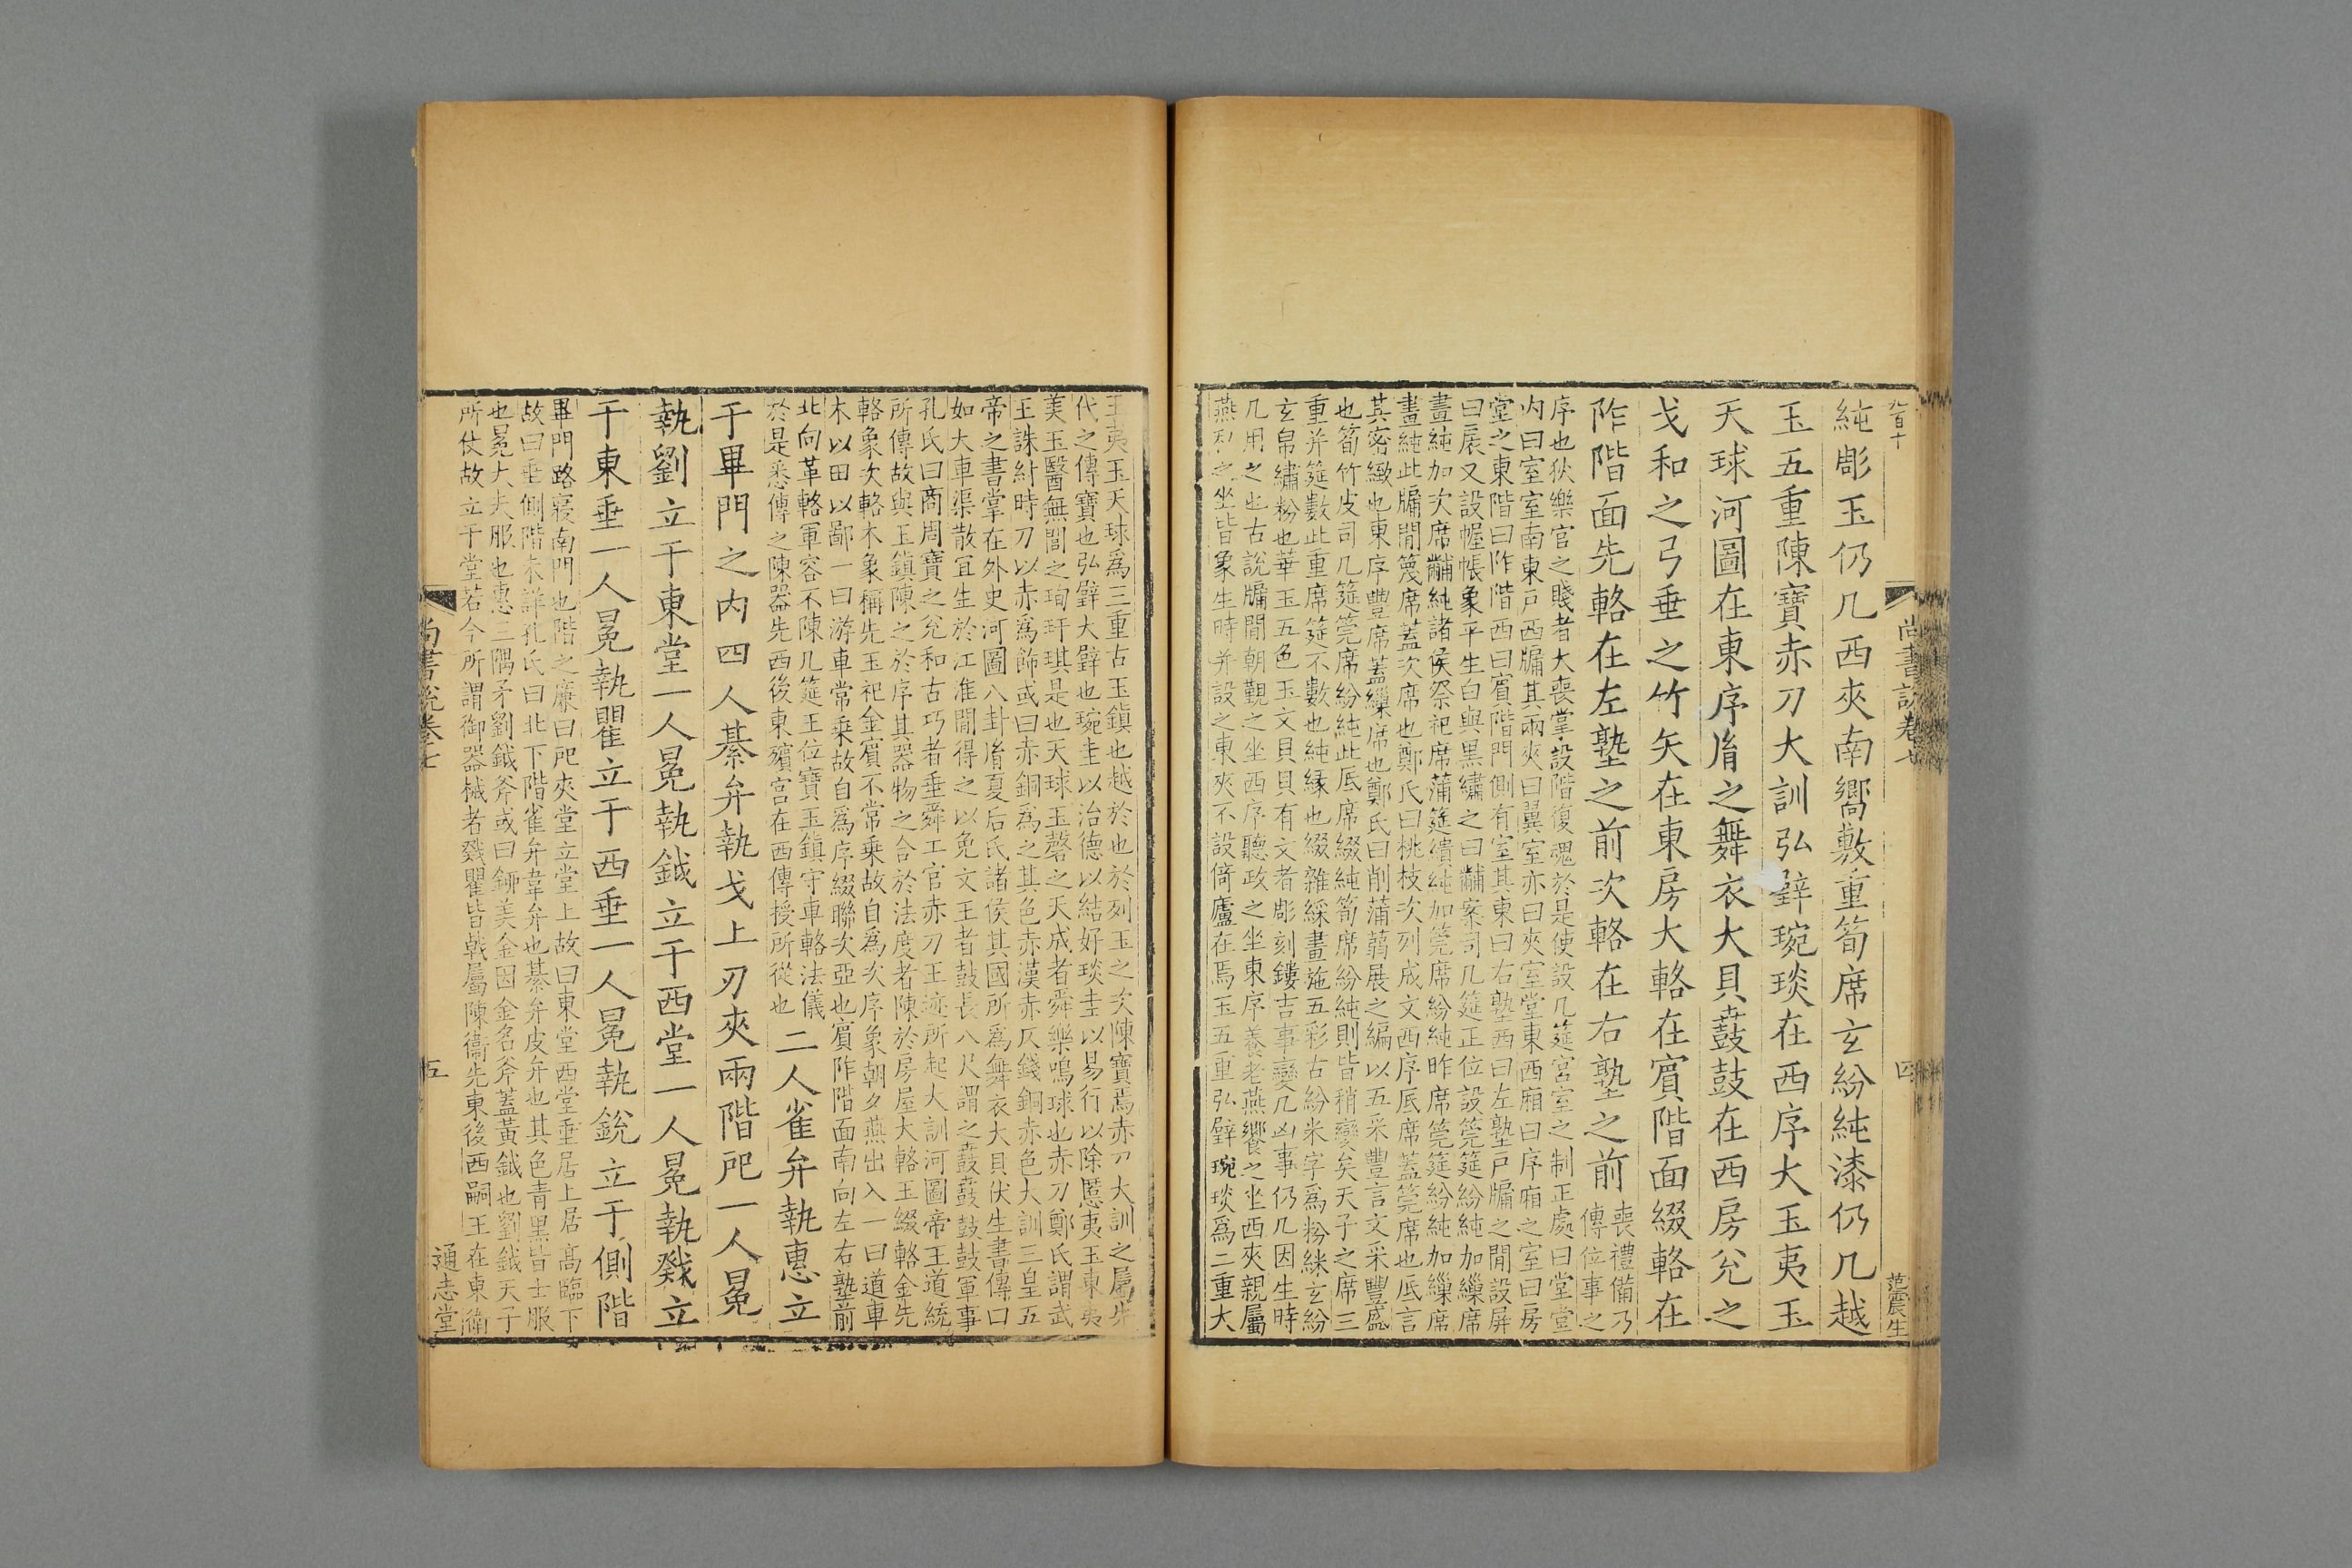 純彫玉仍几西夾南嚮敷重筍席玄紛純漆仍几越
玉五重陳寶赤刀大訓弘璧琬琰在西序大玉夷玉
天球河圖在東序胤之舞衣大貝鼖鼓在西房兊之
戈和之弓垂之竹矢在東房大輅在賔階面綴輅在
阼階面先輅在左塾之前次輅在右塾之前
喪禮備乃
傳位事之
序也狄樂官之賤者大喪掌設階復魂於是使設几筵宫室之制正處曰堂堂
内曰室室南東戸西牖其兩夾曰翼室亦曰夾室堂東西廂曰序廂之室曰房
堂之東階曰阼階西曰賔階門側有室其東曰右塾西曰左塾戸牖之間設屏
曰扆又設幄帳象平生白與黒繡之曰黼案司几筵正位設筦筵紛純加繅席
畫純加次席黼純諸侯祭祀席蒲筵繢純加筦席紛純昨席筦筵紛純加繅席
畫純此牖間篾席蓋次席也鄭氏曰桃枝次列成文西序厎席蓋筦席也厎言
其宻緻也東序豐席蓋繅席也鄭氏曰削蒲蒻展之編以五采豐言文采豐盛
也筍竹皮司几筵筦席紛純此厎席綴純筍席紛純則皆稍變矣天子之席三
重并筵數此重席筵不數也純縁也綴雜綵畫施五彩古紛米字爲粉絲玄紛
玄帛繡粉也華玉五色玉文貝貝有文者彫刻鏤吉事變几凶事仍几因生時
几用之也古說牖間朝覲之坐西序聽政之坐東序養老燕饗之坐西夾親屬
燕私之坐皆象生時并設之東夾不設倚廬在焉玉五重弘璧琬琰爲二重大
尚書說卷七
四
范震生
玉夷玉天球爲三重古玉鎮也越於也於列玉之次陳寶焉赤刀大訓之屬先
代之傳寶也弘璧大璧也琬圭以治德以結好琰圭以易行以除慝夷玉東夷
美玉醫無閭之珣玗琪是也天球玉磬之天成者舜樂鳴球也赤刀鄭氏謂武
王誅紂時刀以赤爲飾或曰赤銅爲之其色赤漢赤仄錢銅赤色大訓三皇五
帝之書掌在外史河圖八卦胤夏后氏諸侯其國所爲舞衣大貝伏生書傳曰
如大車渠散宜生於江淮間得之以免文王者鼓長八尺謂之鼖鼖鼓軍事
孔氏曰商周寶之兊和古巧者垂舜工官赤刀王迹所起大訓河圖帝王道統
所傳故與玉鎮陳之於序其器物之合於法度者陳於房屋大輅玉綴輅金先
輅象次輅木象稱先玉祀金賔不常乗故自爲次序象朝夕燕出入一曰道車
木以田以鄙一曰游車常乗故自爲序綴聯次亞也賔阼階面南向左右塾前
北向革輅軍容不陳几筵王位寶玉鎮守車輅法儀
於是悉傳之陳器先西後東殯宫在西傳授所從也
二人雀弁執惠立
于畢門之内四人綦弁執戈上刃夾兩階戺一人冕
執劉立于東堂一人冕執鉞立于西堂一人冕執戣立
于東垂一人冕執瞿立于西垂一人冕執鋭立于側階
畢門路寢南門也階之廉曰戺夾堂立堂上故曰東堂西堂垂居上居髙臨下
故曰垂側階未詳孔氏曰北下階雀弁韋弁也綦弁皮弁也其色青黒皆士服
也冕大夫服也惠三隅矛劉鉞斧或曰鉚美金因金名斧蓋黃鉞也劉鉞天子
所仗故立于堂若今所謂御器械者戣瞿皆戟屬陳衞先東後西嗣王在東衞
尚書說卷七
五
通志堂